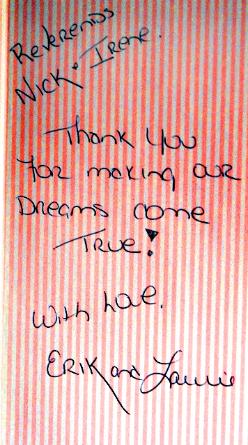 Reverends
Nick & Irene.
Thank you
for making our
Dreams come
True!
With Love,
Erik and Laurie